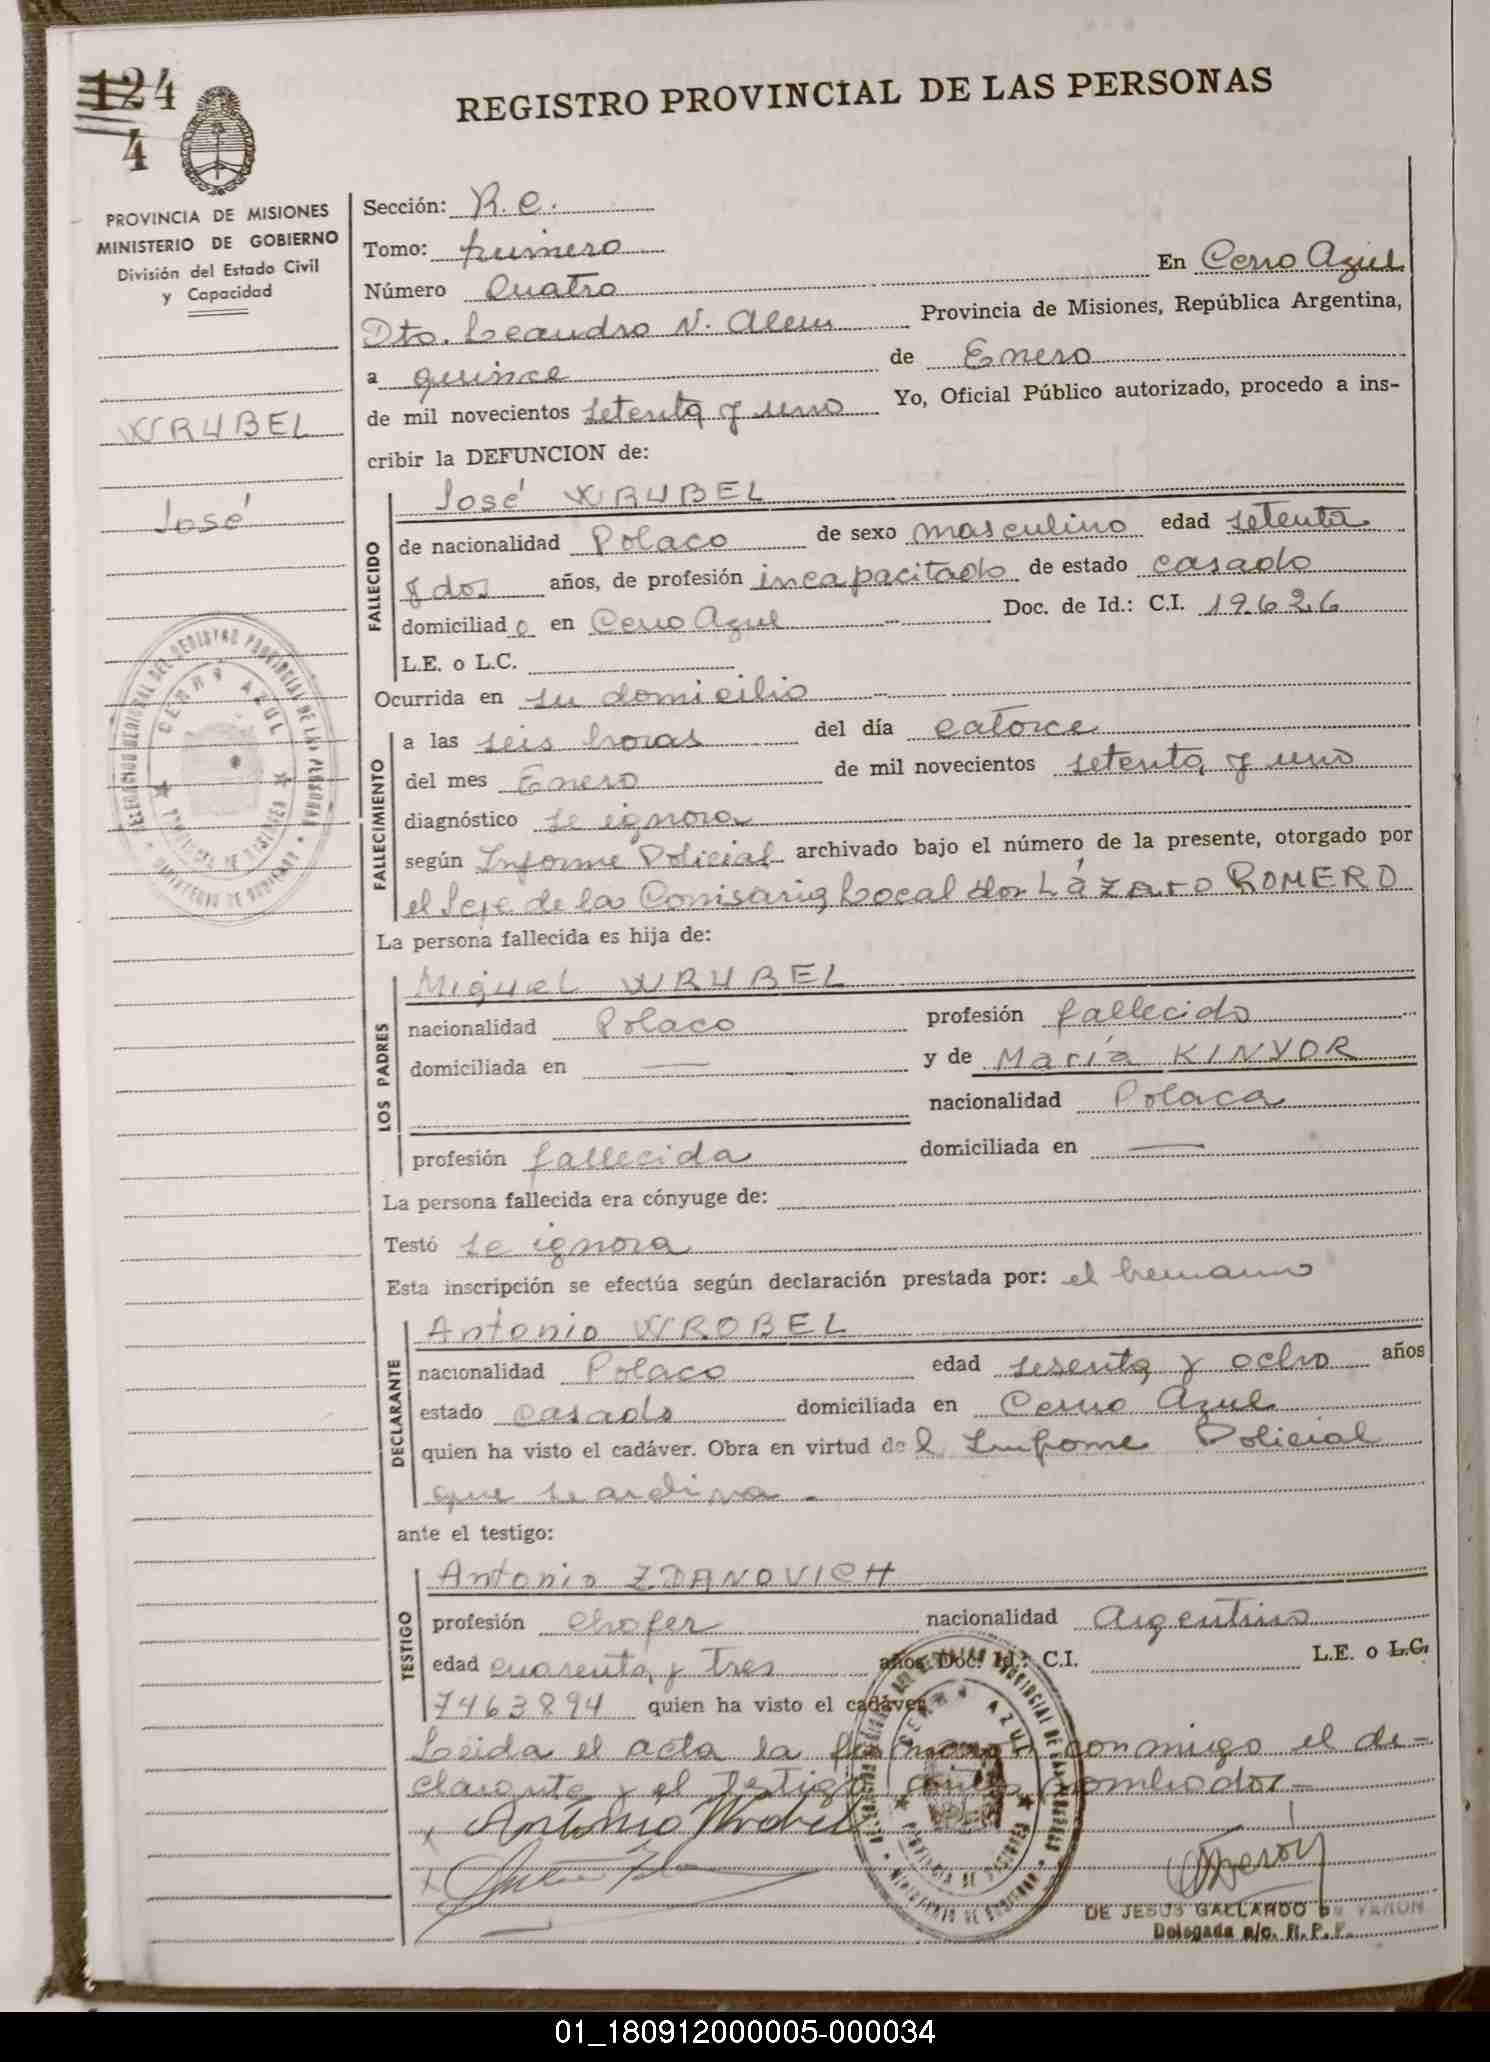 124
4
REGISTRO PROVINCIAL DE LAS PERSONAS
PROVINCIA DE MISIONES
MINISTERIO DE GOBIERNO
División del Estado Civil
y Capacidad
WRUBEL
José
Sección: R. e.
Tomo: primero
Número Cuatro En Cerro Azul
Dto. Leandro N. Alem Provincia de Misiones, República Argentina,
a quince de Enero
de mil novecientos setenta y uno Yo, Oficial Público autorizado, procedo a ins-
cribir la DEFUNCION de:
FALLECIDO
José WRUBEL
de nacionalidad Polaco de sexo masculino edad setenta
y dos años, de profesión incapacitado de estado casado
domiciliado en Cerro Azul Doc. de Id.: C.I. 19626
L.E. o L.C.
Ocurrida en su domicilio
FALLECIMIENTO
a las seis horas del día catorce
del mes Enero de mil novecientos setenta y uno
diagnóstico se ignora
según Informe Policial archivado bajo el número de la presente, otorgado por
el Jefe de la Comisaria Local don Lázaro ROMERO
La persona fallecida es hija de:
LOS PADRES
Miguel WRUBEL
nacionalidad Polaco profesión fallecido
domiciliada en — y de María KINVOR
nacionalidad Polaca
profesión fallecida domiciliada en —
La persona fallecida era cónyuge de:
Testó se ignora
Esta inscripción se efectúa según declaración prestada por: el hermano
DECLARANTE
Antonio WROBEL
nacionalidad Polaco edad sesenta y ocho años
estado casado domiciliada en Cerro Azul
quien ha visto el cadáver. Obra en virtud del Informe Policial
que se archiva.
ante el testigo:
TESTIGO
Antonio ZDANOVICH
profesión Chofer nacionalidad Argentino
edad cuarenta y tres años Doc. Id.: C.I. L.E. o L.C.
7463894 quien ha visto el cadáver
Leida el acta la firmaron conmigo el de-
clarante y el testigo antes nombrados-
Antonio Wrobel
DE JESUS GALLARDO DE VERON
Delegada a/c. R.P.P.
DELEGACION REGIONAL DEL REGISTRO PROVINCIAL DE LAS PERSONAS
CERRO AZUL
PROVINCIA DE MISIONES
MINISTERIO DE GOBIERNO
01_180912000005-000034